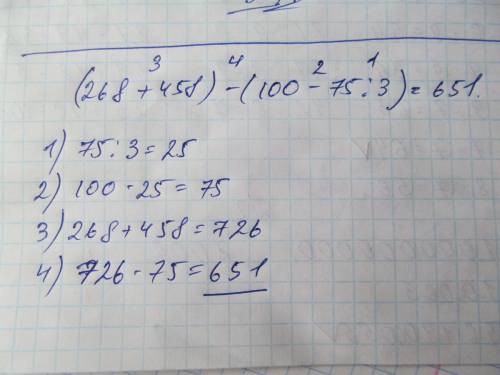 3 4 2 1
(268 + 458) - (100 - 75 : 3) = 651.
1) 75 : 3 = 25
2) 100 - 25 = 75
3) 268 + 458 = 726
4) 726 - 75 = 651